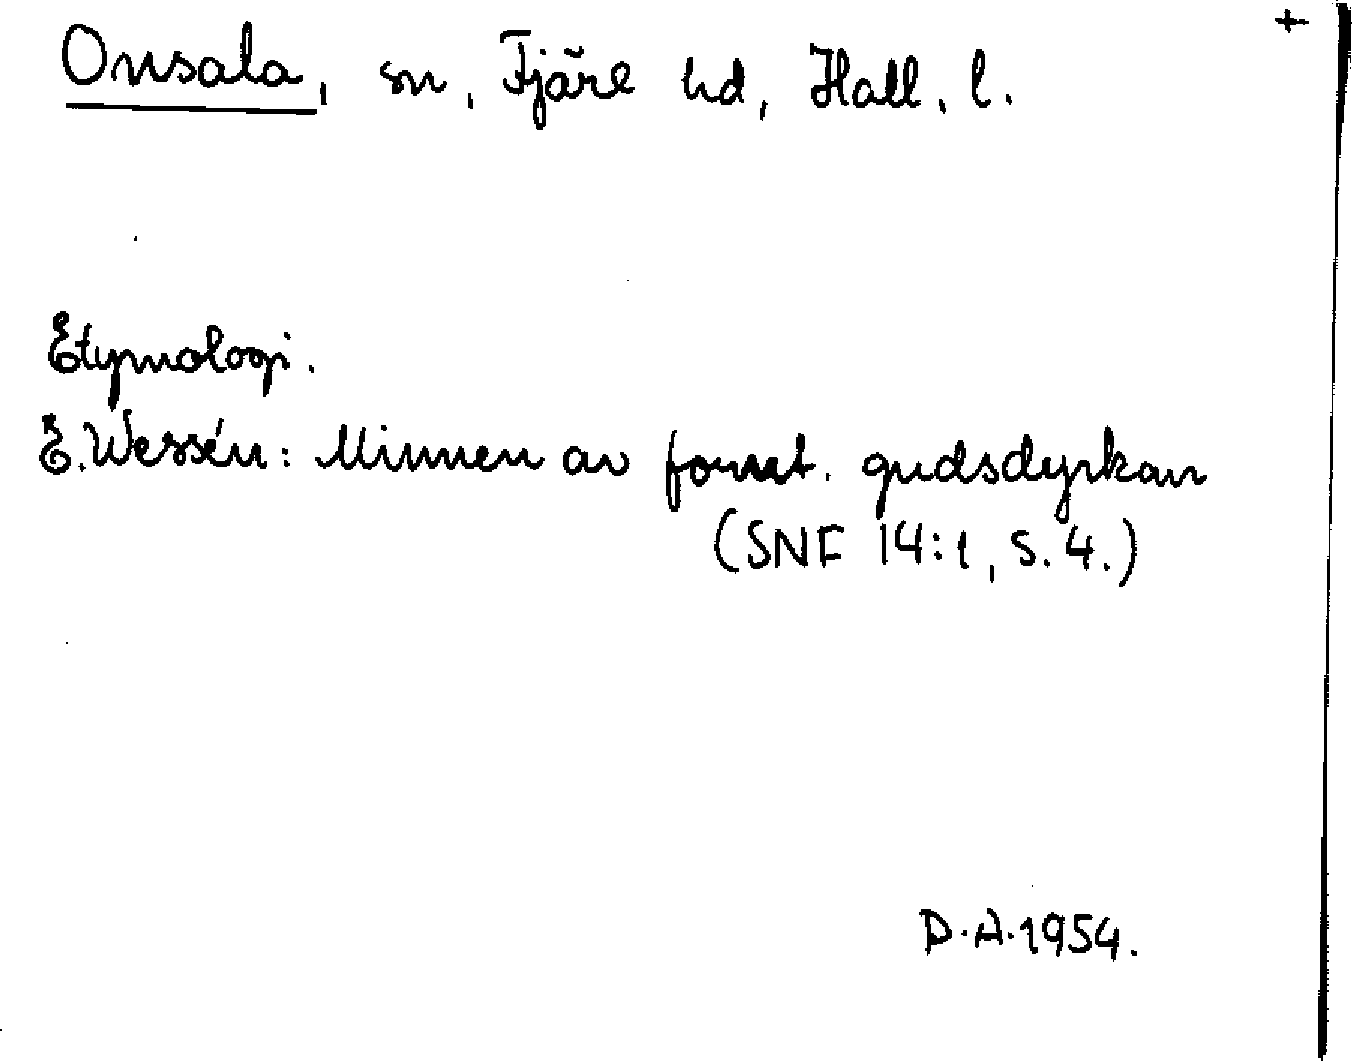 +
Onsala, sn, Fjäre hd, Hall. l.
Etymologi.
E. Wessén: Minnen av fornt. gudsdyrkan
(SNF 14:1, S. 4.)
D.A. 1954.